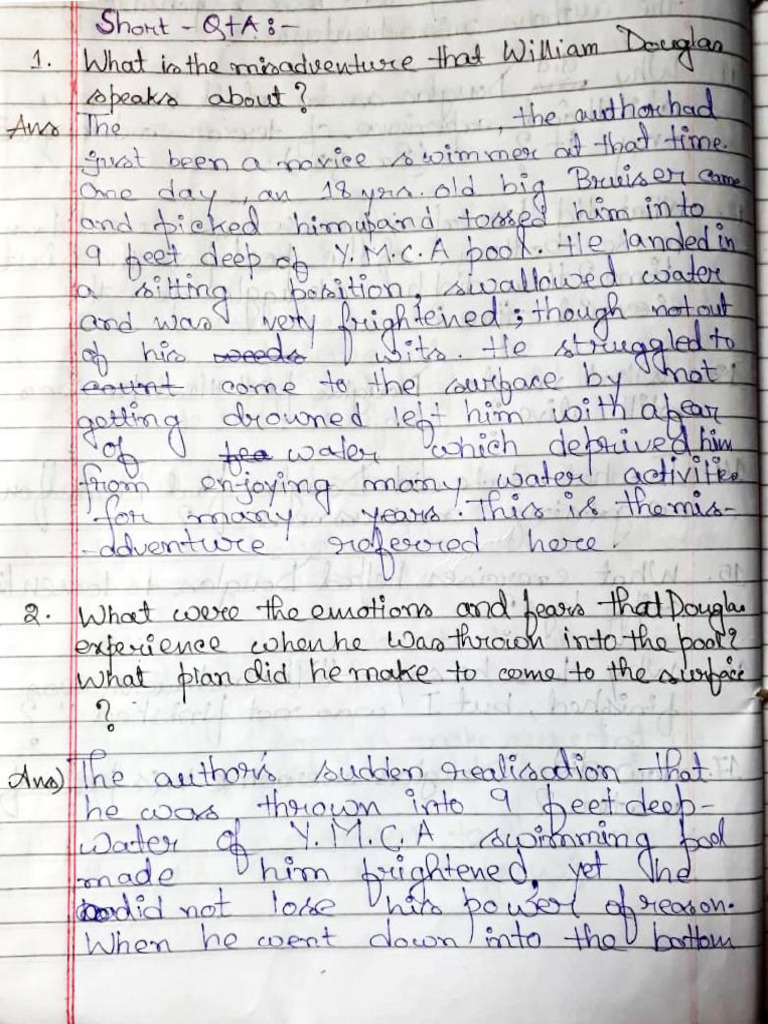 Short - Q+A :-
1. What is the misadventure that William Douglas
speaks about?
Ans The , the author had
just been a novice swimmer at that time.
One day, an 18 yrs. old big Bruiser came
and picked him up and tossed him into
9 feet deep of Y.M.C.A pool. He landed in
a sitting position, swallowed water
and was very frightened; though not out
of his wits. He struggled to
come to the surface by not
getting drowned left him with a fear
of water which deprived him
from enjoying many water activities
for many years. This is the mis-
-adventure referred here.
2. What were the emotions and fears that Douglas
experience when he was thrown into the pool?
What plan did he make to come to the surface
?
Ans) The author's sudden realisation that
he was thrown into 9 feet deep-
water of Y.M.C.A swimming pool
made him frightened, yet he
did not lose his power of reason.
When he went down into the bottom